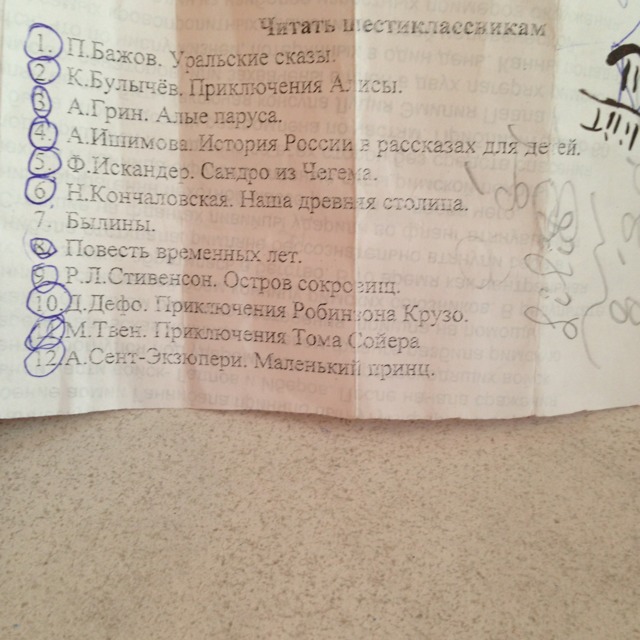 Читать шестиклассникам
1. П.Бажов. Уральские сказы.
2. К.Булычёв. Приключения Алисы.
3. А.Грин. Алые паруса.
4. А.Ишимова. История России в рассказах для детей.
5. Ф.Искандер. Сандро из Чегема.
6. Н.Кончаловская. Наша древняя столица.
7. Былины.
8. Повесть временных лет.
9. Р.Л.Стивенсон. Остров сокровищ.
10. Д.Дефо. Приключения Робинзона Крузо.
11. М.Твен. Приключения Тома Сойера
12. А.Сент-Экзюпери. Маленький принц.